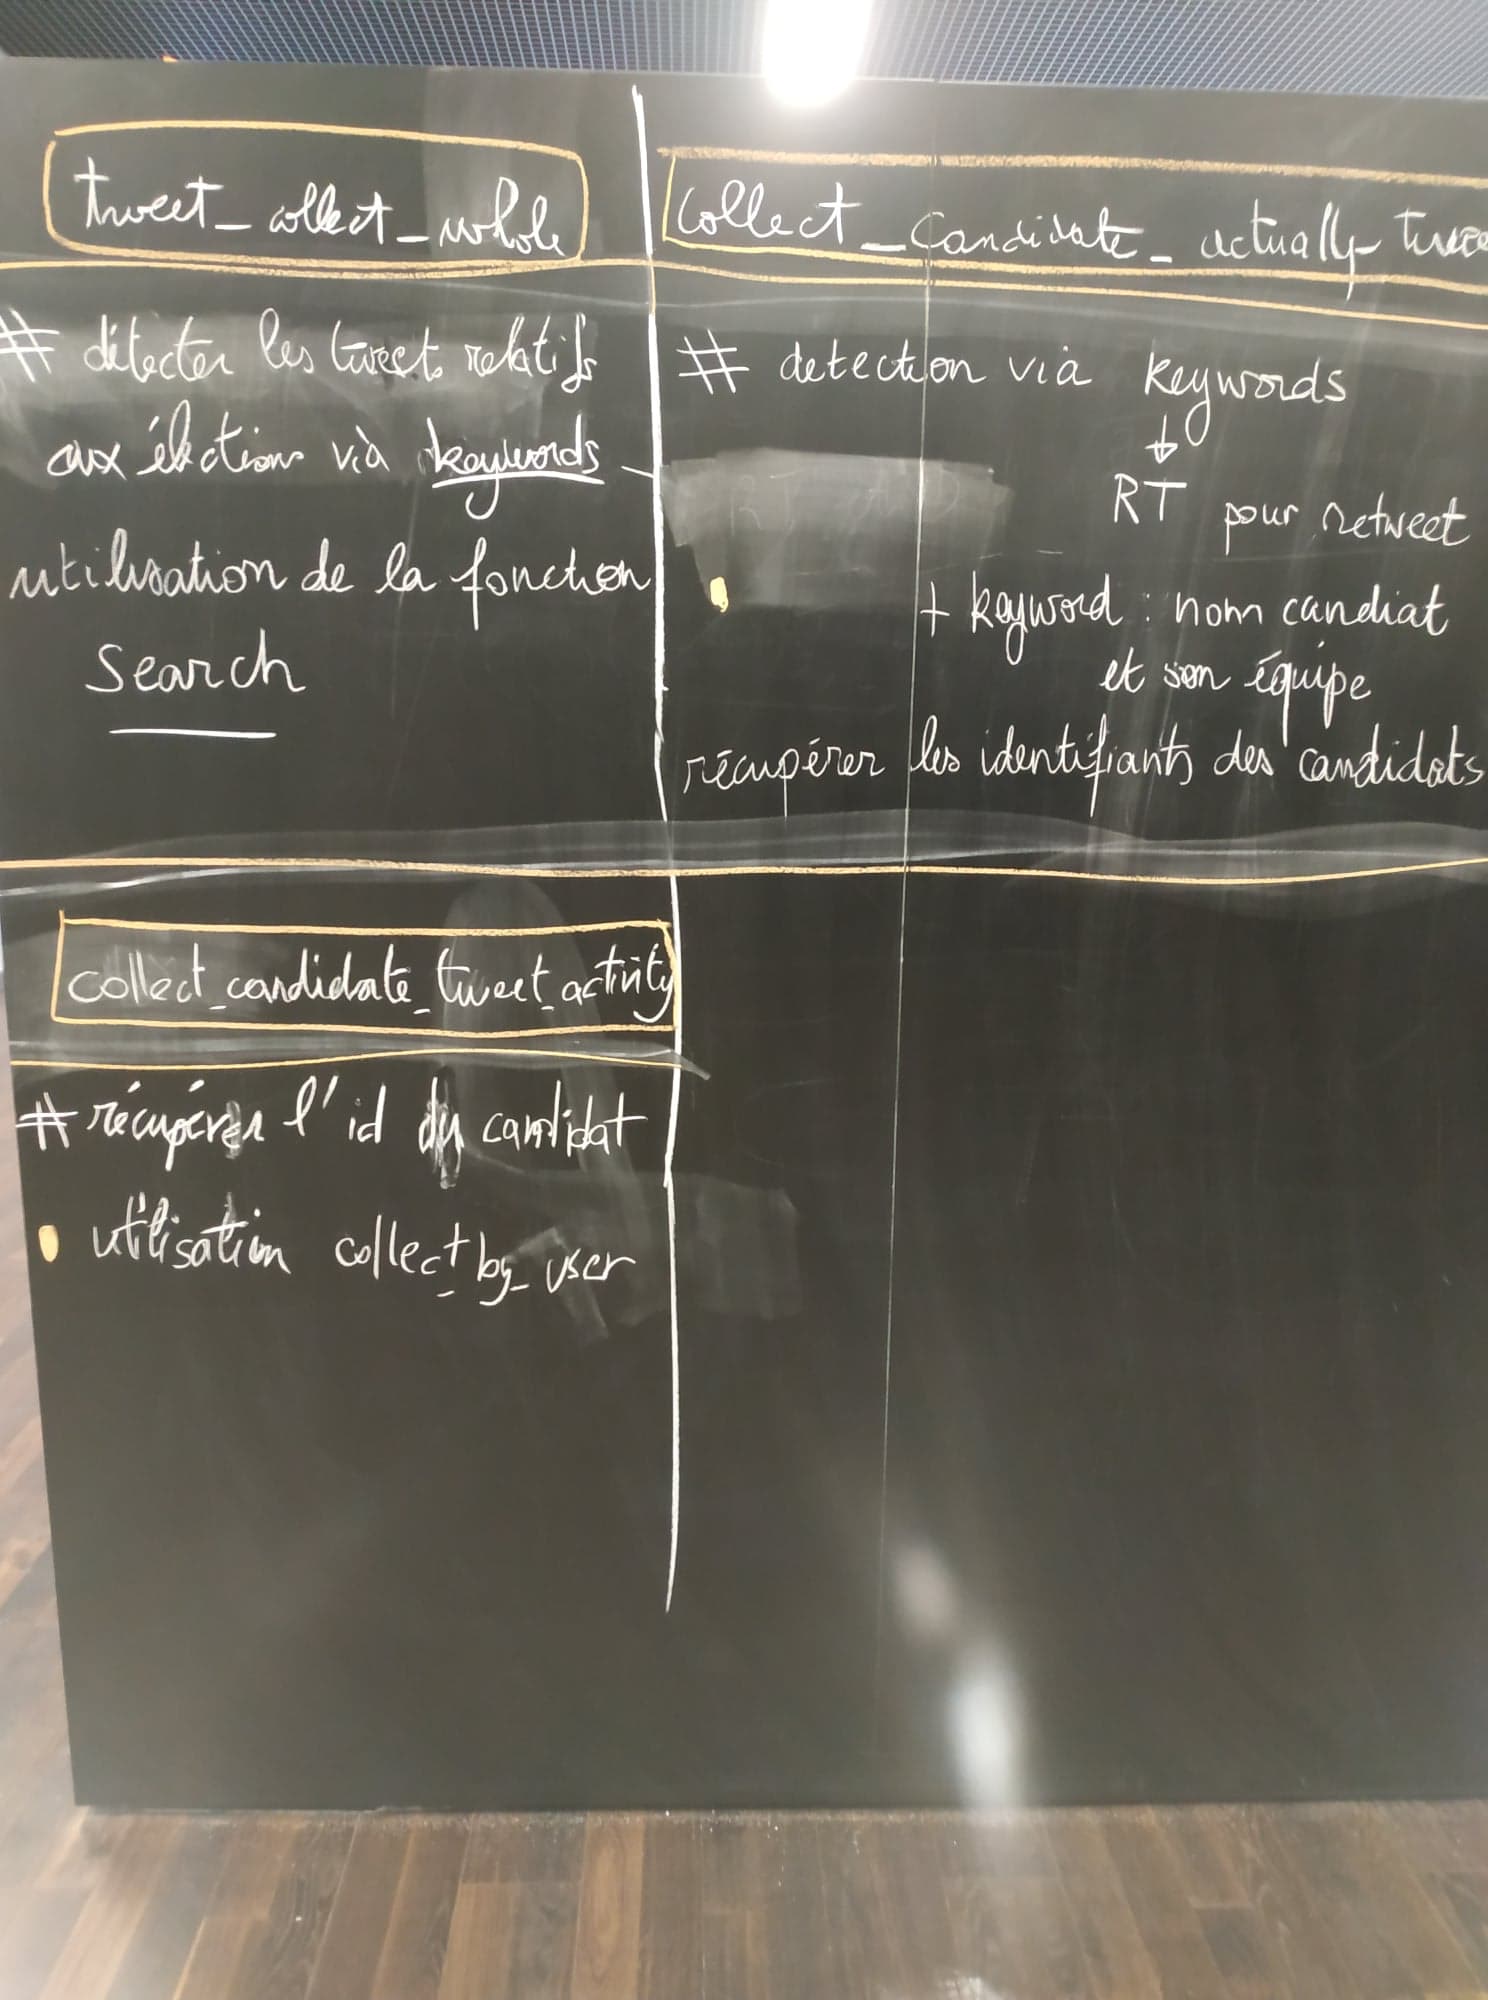 tweet_collect_whole
# détecter les tweet relatifs
aux élections via keywords
utilisation de la fonction
search
collect_candidate_actually_twee
# detection via keywords
RT pour retweet
+ keyword : nom candiat
et son équipe
récupérer les identifiants des candidats
collect_candidate_tweet_activity
# récupérer l'id du candidat
utilisation collect_by_user